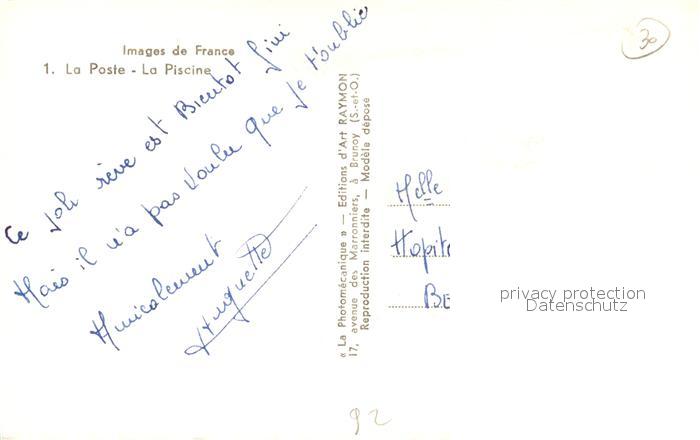 Images de France
1. La Poste - La Piscine
Ce joli rêve est Bientot fini
Mais il n'a pas voulu que je t'oublie
Amicalement
Huguette
« La Photomécanique » — Editions d'Art RAYMON
17, avenue des Marronniers, à Brunoy (S.-et-O.)
Reproduction interdite — Modèle déposé
30
Melle
Hopit
BE
privacy protection
Datenschutz
92